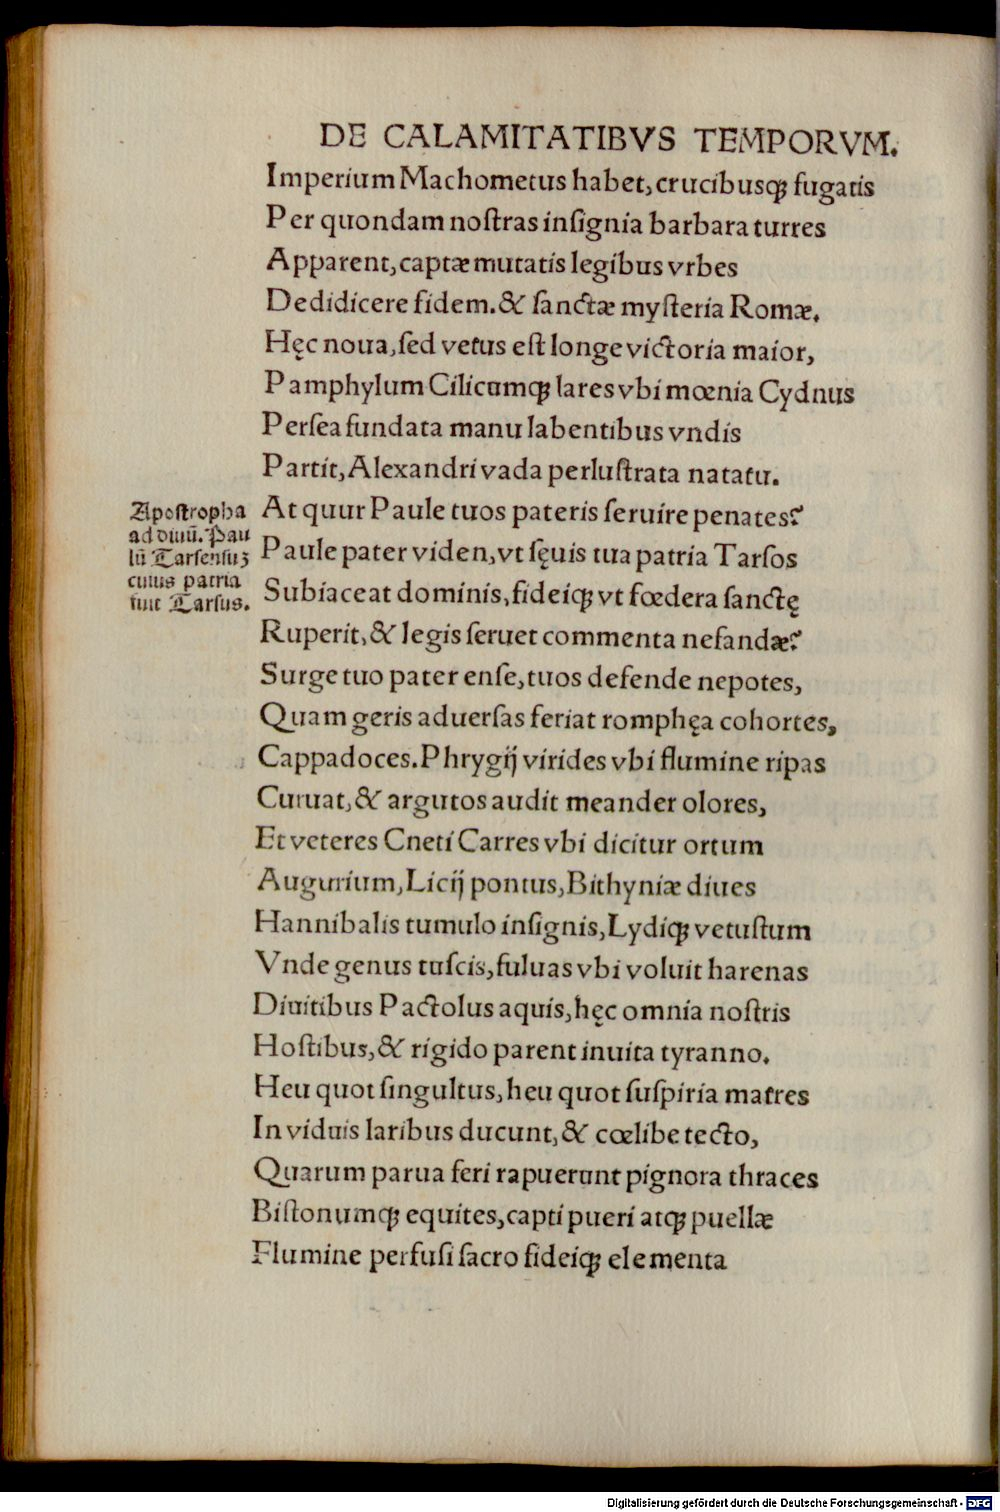 DE CALAMITATIBVS TEMPORVM.
Imperium Machometus habet, crucibusqꝫ fugatis
Per quondam noſtras inſignia barbara turres
Apparent, captæ mutatis legibus vrbes
Dedidicere fidem. & ſanctæ myſteria Romæ.
Hęc noua, ſed vetus eſt longe victoria maior,
Pamphylum Cilicumqꝫ lares vbi mœnia Cydnus
Perſea fundata manu labentibus vndis
Partit, Alexandri vada perluſtrata natatu.
Apoſtropha
ad diuū. Pau
lū Tarſenſuꝫ
cuius patria
fuit Tarſus.
At quur Paule tuos pateris ſeruire penates?
Paule pater viden, vt ſęuis tua patria Tarſos
Subiaceat dominis, fideiqꝫ vt fœdera ſanctę
Ruperit, & legis ſeruet commenta nefandæ?
Surge tuo pater enſe, tuos defende nepotes,
Quam geris aduerſas feriat romphęa cohortes,
Cappadoces. Phrygij virides vbi flumine ripas
Curuat, & argutos audit meander olores,
Et veteres Cneti Carres vbi dicitur ortum
Augurium, Licij pontus, Bithyniæ diues
Hannibalis tumulo inſignis, Lydiqꝫ vetuſtum
Vnde genus tuſcis, fuluas vbi voluit harenas
Diuitibus Pactolus aquis, hęc omnia noſtris
Hoſtibus, & rigido parent inuita tyranno.
Heu quot ſingultus, heu quot ſuſpiria matres
In viduis laribus ducunt, & cœlibe tecto,
Quarum parua feri rapuerunt pignora thraces
Biſtonumqꝫ equites, capti pueri atqꝫ puellæ
Flumine perfuſi ſacro fideiqꝫ elementa
Digitalisierung gefördert durch die Deutsche Forschungsgemeinschaft - DFG